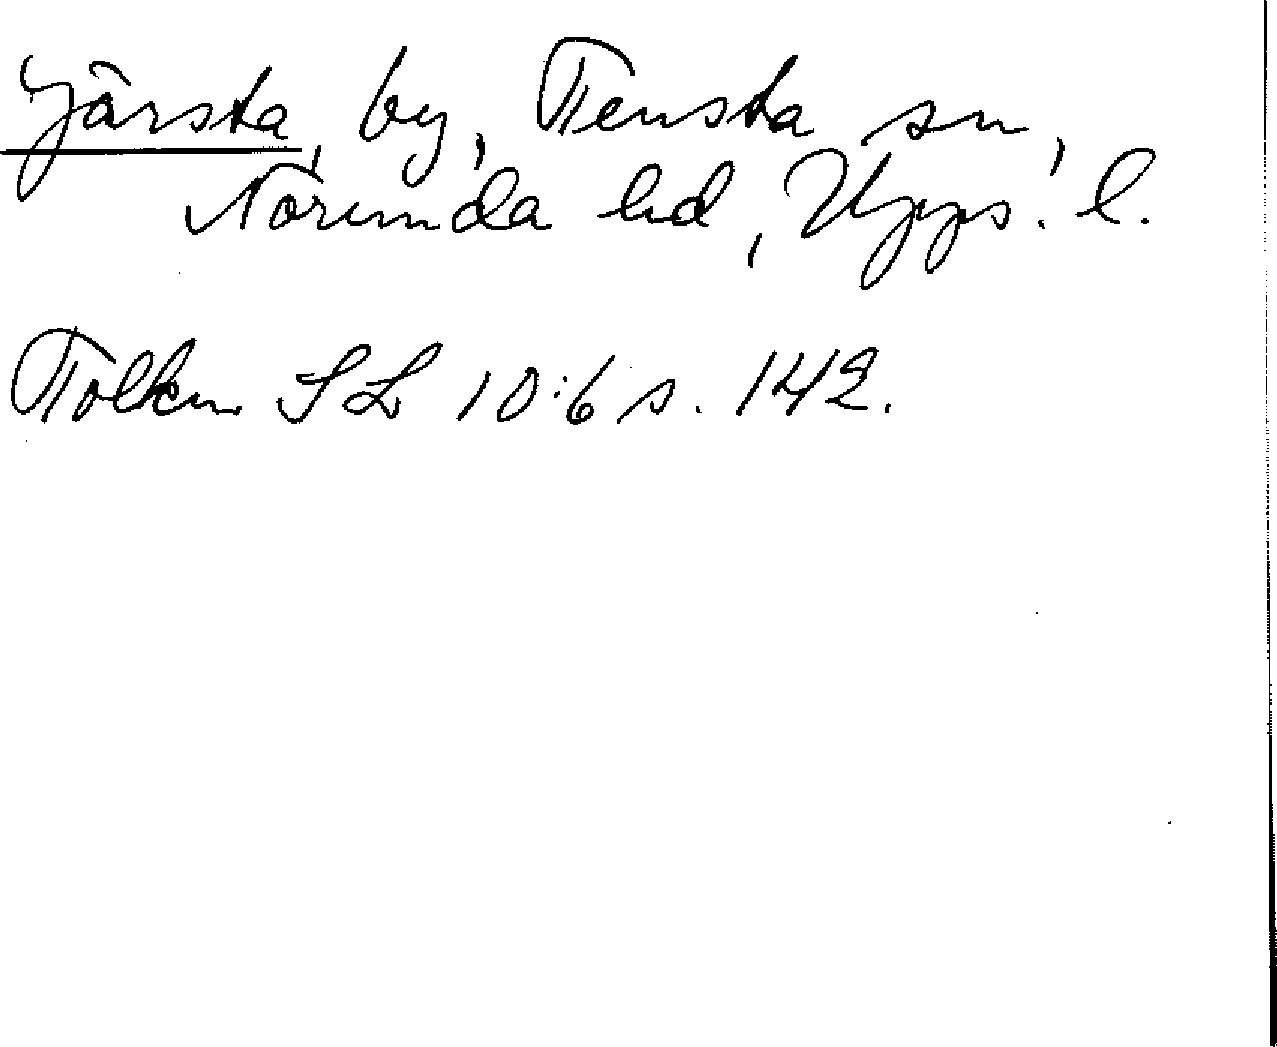 Järsta, by, Tensta sn,
Norunda hd, Upps. l.
Tolkn SL 10:6 s. 142.